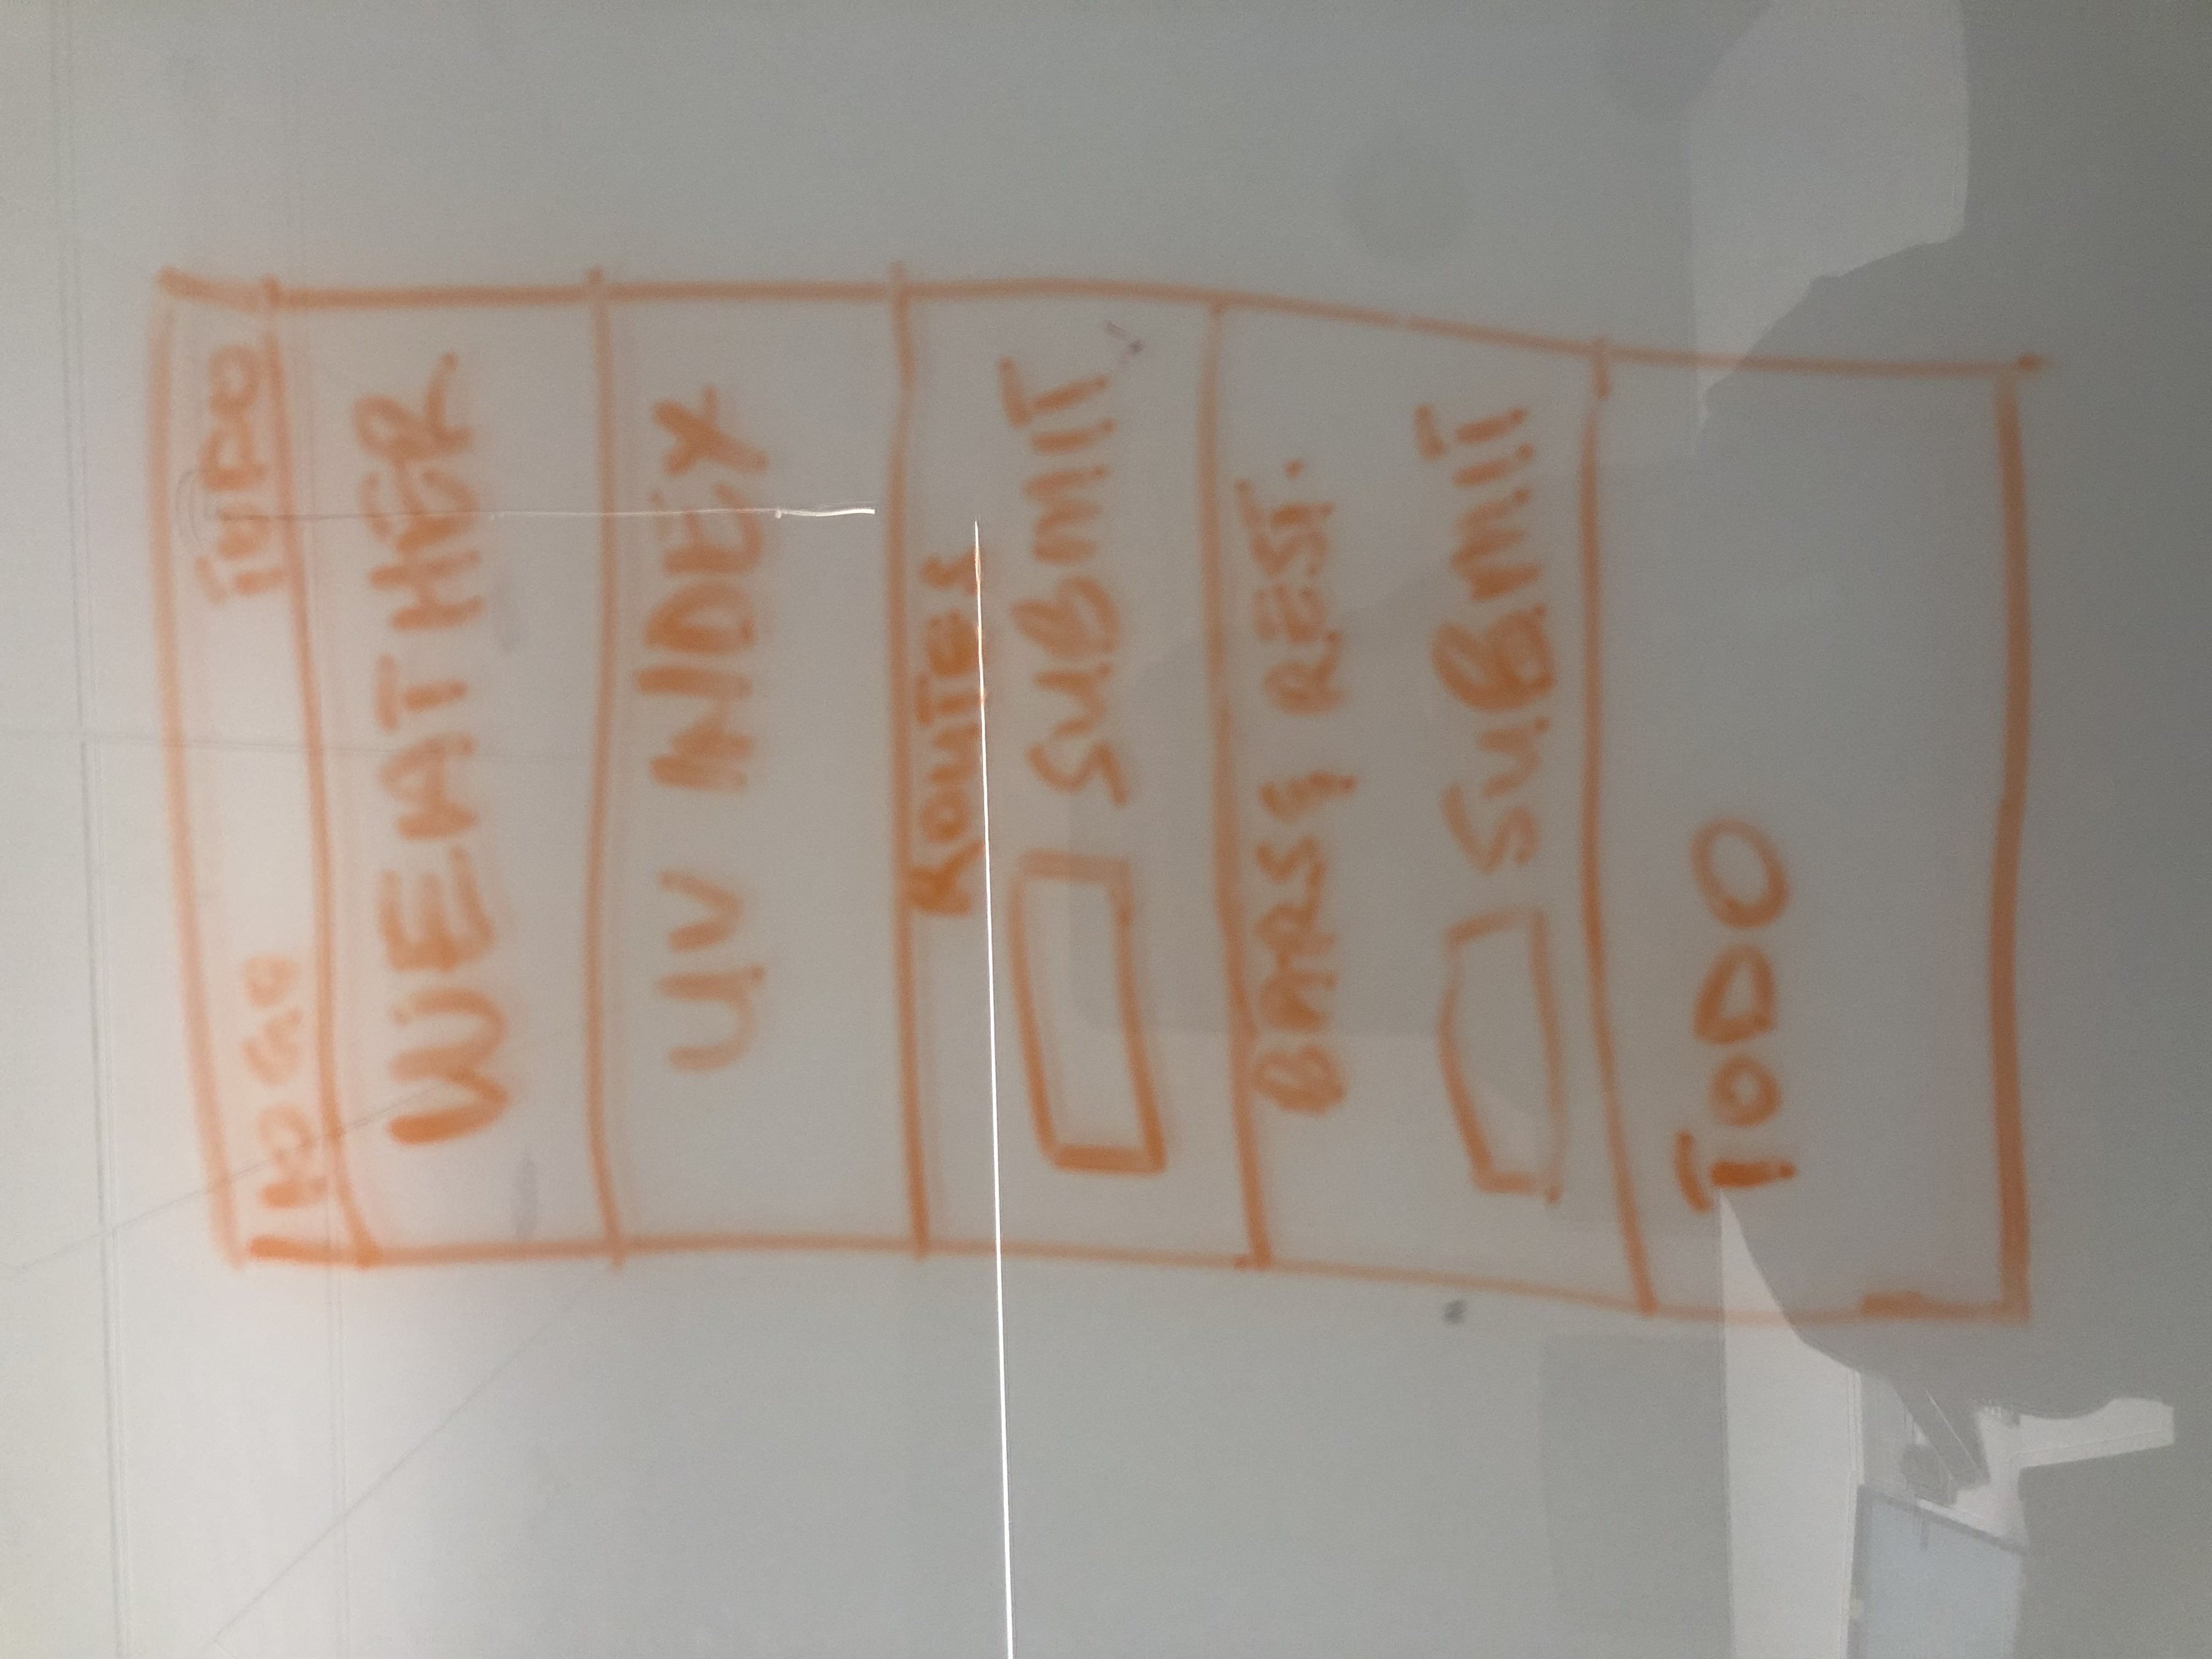 LOGO TODO
WEATHER
UV INDEX
ROUTES
SUBMIT
BARS & REST.
SUBMIT
TODO